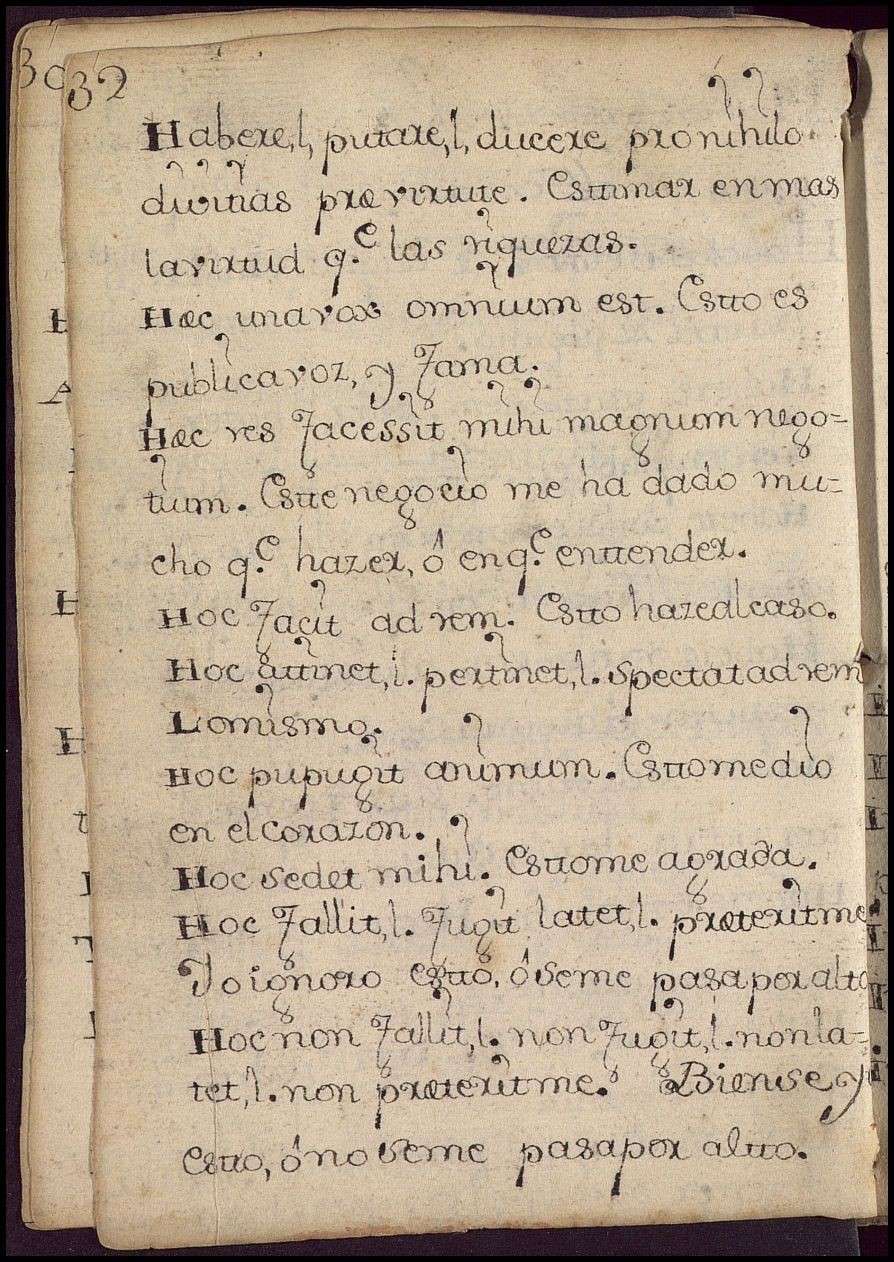 30
32
Habere, l, putare, l, ducere pro nihilo
divitias præ virtute. Esttimar en mas
la virtud q.e las riquezas.
Hæc una vox omnium est. Estto es
publica voz, y fama.
Hæc res facessit mihi magnum nego-
tium. Estte negocio me ha dado mu-
cho q.e hazer, ó en q.e enttender.
Hoc facit ad rem. Estto haze al caso.
Hoc attinet, l. pertinet, l. spectat ad rem
Lo mismo.
Hoc pupugit animum. Estto me dio
en el corazon.
Hoc sedet mihi. Estto me agrada.
Hoc fallit, l. fugit latet, l. præterit me
Yo ignoro estto, ó se me pasa por alto
Hoc non fallit, l. non fugit, l. non la-
tet, l. non præterit me. Bien se y
estto, ó no se me pasa por altto.